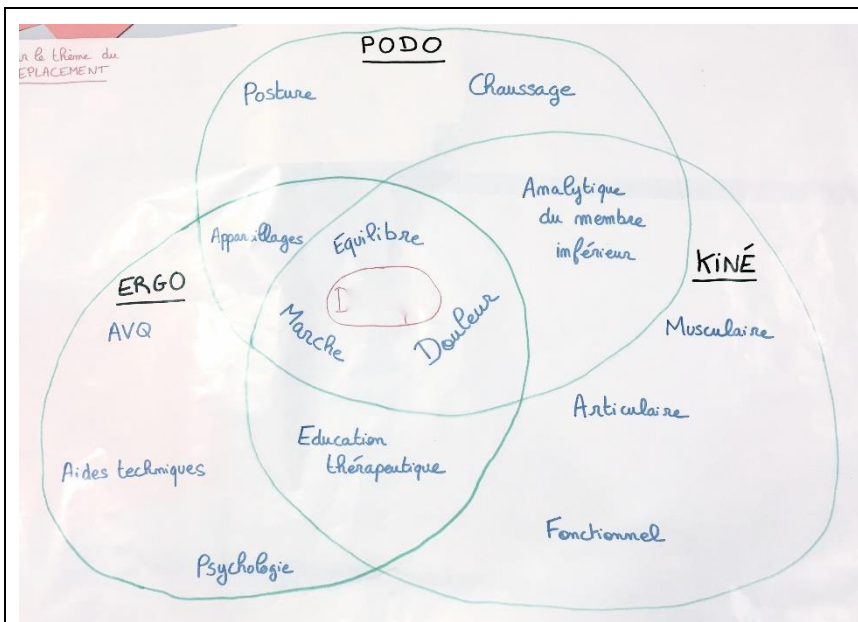 le thème du
PODO
Posture
Chaussage
Analytique
du membre
inférieur
Appareillages
Équilibre
KiNÉ
ERGO
AVQ
Marche
Douleur
Musculaire
Articulaire
Education
thérapeutique
Aides techniques
Fonctionnel
Psychologie